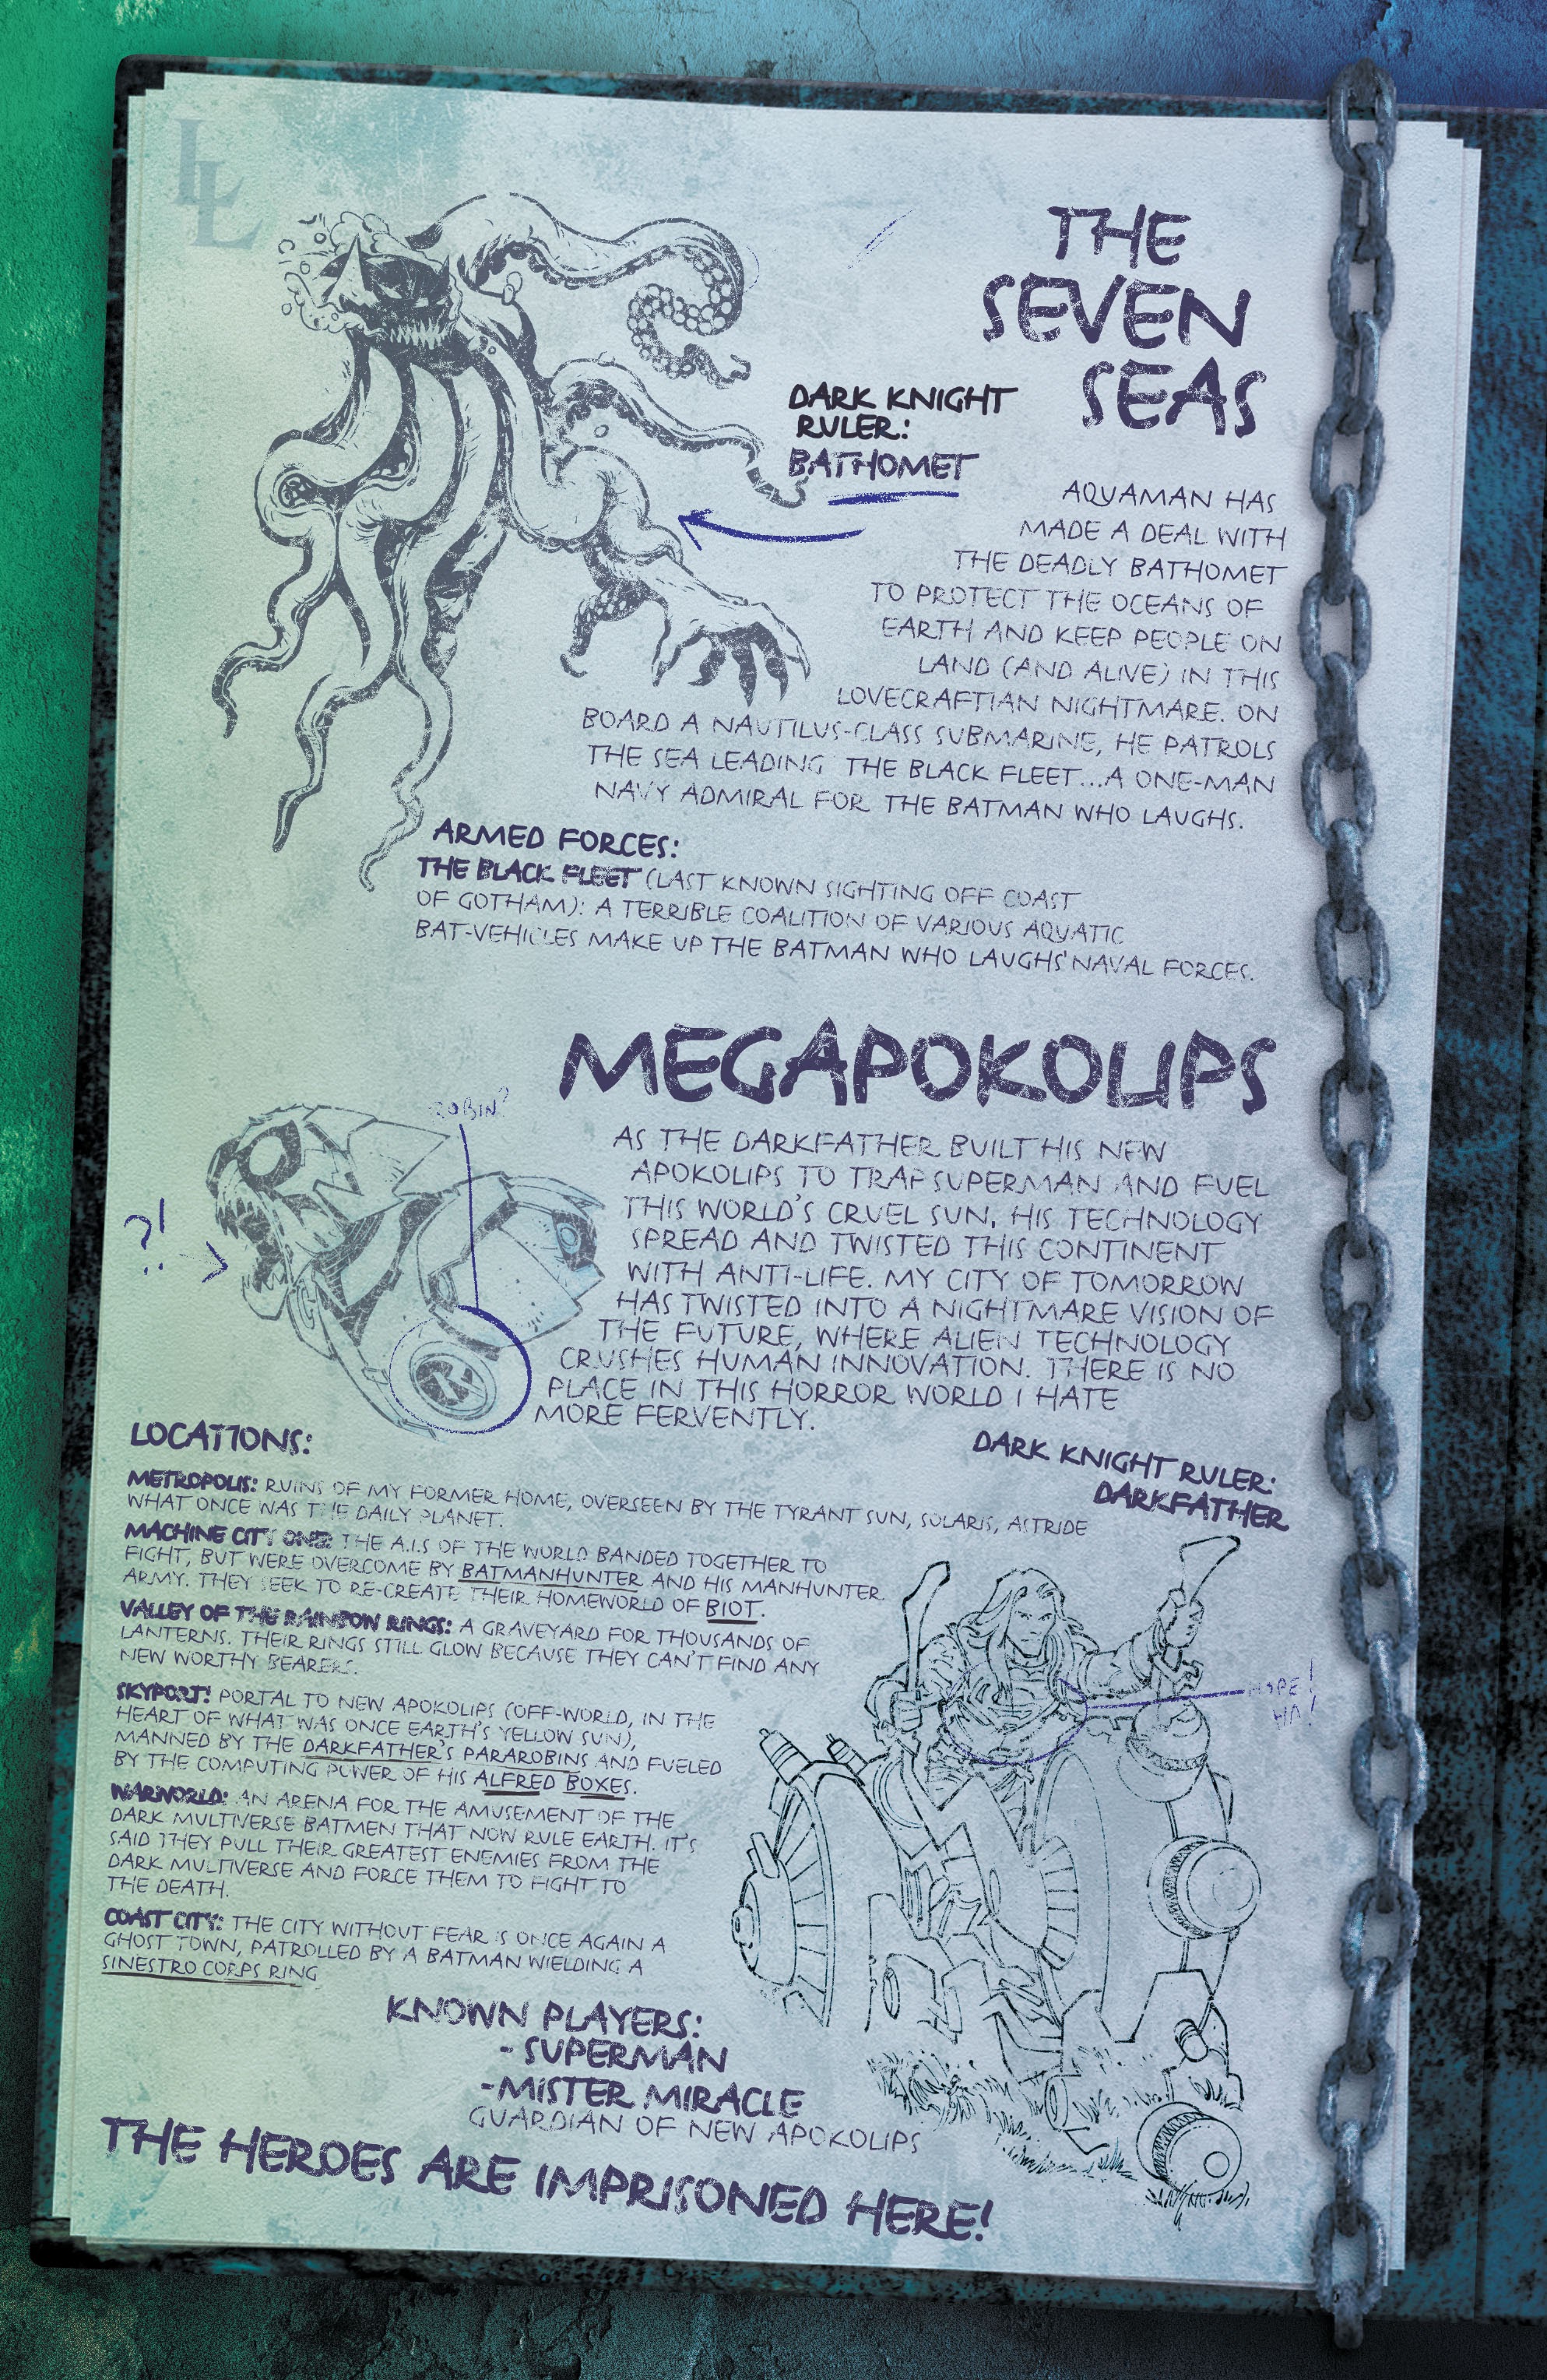 LL
THE
SEVEN
SEAS
DARK KNIGHT
RULER:
BATHOMET
AQUAMAN HAS
MADE A DEAL WITH
THE DEADLY BATHOMET
TO PROTECT THE OCEANS OF
EARTH AND KEEP PEOPLE ON
LAND (AND ALIVE) IN THIS
LOVECRAFTIAN NIGHTMARE. ON
BOARD A NAUTILUS-CLASS SUBMARINE, HE PATROLS
THE SEA LEADING THE BLACK FLEET...A ONE-MAN
NAVY ADMIRAL FOR THE BATMAN WHO LAUGHS.
ARMED FORCES:
THE BLACK FLEET (LAST KNOWN SIGHTING OFF COAST
OF GOTHAM): A TERRIBLE COALITION OF VARIOUS AQUATIC
BAT-VEHICLES MAKE UP THE BATMAN WHO LAUGHS' NAVAL FORCES.
MEGAPOKOLIPS
ROBIN?
?!
R
AS THE DARKFATHER BUILT HIS NEW
APOKOLIPS TO TRAP SUPERMAN AND FUEL
THIS WORLD'S CRUEL SUN, HIS TECHNOLOGY
SPREAD AND TWISTED THIS CONTINENT
WITH ANTI-LIFE. MY CITY OF TOMORROW
HAS TWISTED INTO A NIGHTMARE VISION OF
THE FUTURE, WHERE ALIEN TECHNOLOGY
CRUSHES HUMAN INNOVATION. THERE IS NO
PLACE IN THIS HORROR WORLD I HATE
MORE FERVENTLY.
LOCATIONS:
METROPOLIS: RUINS OF MY FORMER HOME, OVERSEEN BY THE TYRANT SUN, SOLARIS, ASTRIDE
WHAT ONCE WAS THE DAILY PLANET.
MACHINE CITY ONE: THE A.I.S OF THE WORLD BANDED TOGETHER TO
FIGHT, BUT WERE OVERCOME BY BATMANHUNTER AND HIS MANHUNTER
ARMY. THEY SEEK TO RE-CREATE THEIR HOMEWORLD OF BIOT.
VALLEY OF THE RAINBOW RINGS: A GRAVEYARD FOR THOUSANDS OF
LANTERNS. THEIR RINGS STILL GLOW BECAUSE THEY CAN'T FIND ANY
NEW WORTHY BEARERS.
SKYPORT: PORTAL TO NEW APOKOLIPS (OFF-WORLD, IN THE
HEART OF WHAT WAS ONCE EARTH'S YELLOW SUN),
MANNED BY THE DARKFATHER'S PARAROBINS AND FUELED
BY THE COMPUTING POWER OF HIS ALFRED BOXES.
WARWORLD: AN ARENA FOR THE AMUSEMENT OF THE
DARK MULTIVERSE BATMEN THAT NOW RULE EARTH. IT'S
SAID THEY PULL THEIR GREATEST ENEMIES FROM THE
DARK MULTIVERSE AND FORCE THEM TO FIGHT TO
THE DEATH.
COAST CITY: THE CITY WITHOUT FEAR IS ONCE AGAIN A
GHOST TOWN, PATROLLED BY A BATMAN WIELDING A
SINESTRO CORPS RING
DARK KNIGHT RULER:
DARKFATHER
HOPE!
HA!
KNOWN PLAYERS:
- SUPERMAN
- MISTER MIRACLE
GUARDIAN OF NEW APOKOLIPS
THE HEROES ARE IMPRISONED HERE!